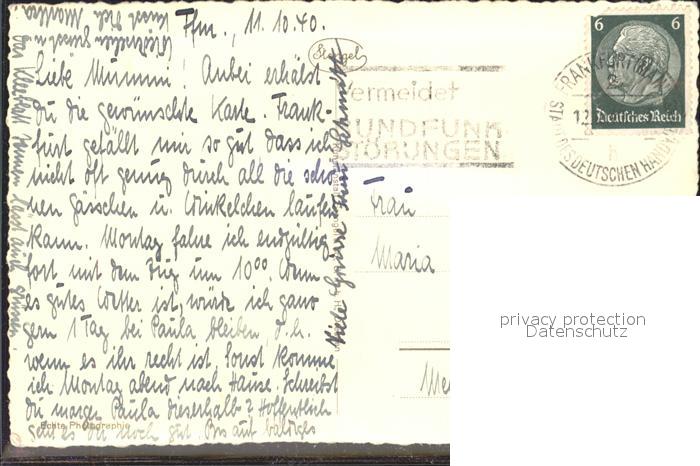 Ffm., 11.10.40.
Liebe Mumm! Anbei erhälst
Du die gewünschte Karte. Frank-
furt gefällt mir so gut dass ich
nicht oft genug durch all die schö-
nen Gässchen u. Winkelchen laufen
kann. Montag fahre ich endgültig
fort mit dem Zug um 10⁰⁰. Wenn
es gutes Wetter ist, würde ich ganz
gern 1 Tag bei Paula bleiben, d.h.
wenn es ihr recht ist. Sonst komme
ich Montag abend nach Hause. Schreibst
Du morgen Paula dieserhalb? Hoffentlich
geht es Dir noch gut. Bis auf baldiges
Viele Grüsse
lässt auch grüssen.
Stengel
Vermeidet
RUNDFUNK
STÖRUNGEN
FRANKFURT (MAIN)
STADT DES DEUTSCHEN HANDWERKS
h
6 6
Deutsches Reich
Frau
Maria
Echte Photographie
privacy protection
Datenschutz